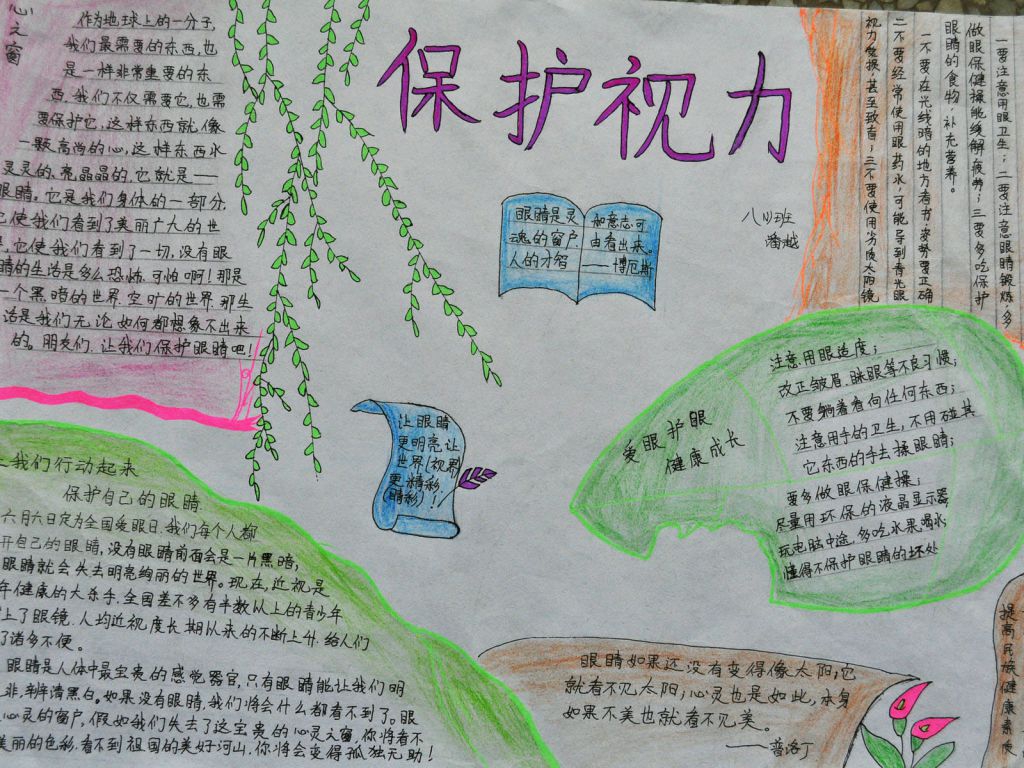 心之窗
作为地球上的一分子,
我们最需要的东西,也
是一样非常重要的东
西,我们不仅需要它,也需
要保护它,这样东西就像
一颗高尚的心,这样东西水
灵灵的、亮晶晶的,它就是——
眼睛。它是我们身体的一部分,
它使我们看到了美丽广大的世
界,它使我们看到了一切,没有眼
睛的生活是多么恐怖,可怕啊!那是
一个黑暗的世界,空旷的世界,那生
活是我们无论如何都想象不出来
的。朋友们,让我们保护眼睛吧!
保护视力
八(1)班
潘越
眼睛是灵
魂的窗户,
人的才智
和意志可
由看出来。
——博厄斯
一要注意用眼卫生;二要注意眼睛锻炼,多
做眼保健操能缓解疲劳;三要多吃保护
眼睛的食物,补充营养。
一不要在光线暗的地方看书,姿势要正确
二不要经常使用眼药水,可能导到青光眼
视力受损,甚至致盲;三不要使用劣质太阳镜
让眼睛
更明亮让
世界(视界)
更精彩
(睛彩)!
爱眼护眼
健康成长
注意用眼适度;
改正皱眉、眯眼等不良习惯;
不要躺着看向任何东西;
注意用手的卫生,不用碰其
它东西的手去揉眼睛;
要多做眼保健操;
尽量用环保的液晶显示器,
玩电脑中途,多吃水果喝水,
懂得不保护眼睛的坏处
让我们行动起来
保护自己的眼睛
六月六日定为全国爱眼日,我们每个人都
开自己的眼睛,没有眼睛前面会是一片黑暗,
眼睛就会失去明亮绚丽的世界。现在,近视是
年健康的大杀手,全国差不多有半数以上的青少年
上了眼镜,人均近视度长期以来的不断上升,给人们
了诸多不便。
眼睛是人体中最宝贵的感觉器官,只有眼睛能让我们明
非,辨清黑白。如果没有眼睛,我们将会什么都看不到了。眼
心灵的窗户,假如我们失去了这宝贵的心灵之窗,你将看不
美丽的色彩,看不到祖国的美好河山,你将会变得孤独无助!
眼睛如果还没有变得像太阳,它
就看不见太阳;心灵也是如此,本身
如果不美也就看不见美。
——普洛丁
提高民族健康素质